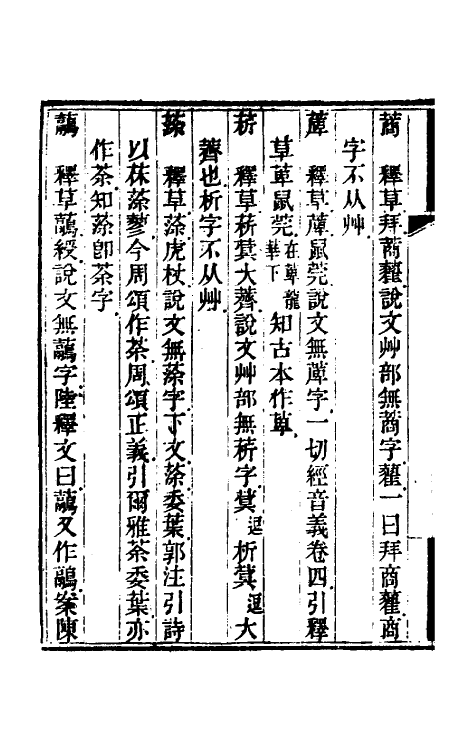 蔏　釋草拜蔏藋說文艸部無蔏字藋一曰拜商藋商
字不从艸
蕇　釋草蕇鼠莞說文無蕇字一切經音義卷四引釋
草萆鼠莞在萆蘢華下知古本作萆
菥　釋草菥蓂大薺說文艸部無菥字蓂析蓂大
薺也析字不从艸
蒤　釋草蒤虎杖說文無蒤字下文蒤委葉郭注引詩
以茠蒤蓼今周頌作荼周頌正義引爾雅荼委葉亦
作荼知蒤卽荼字
虉　釋草虉綬說文無虉字陸釋文曰虉又作鷊案陳